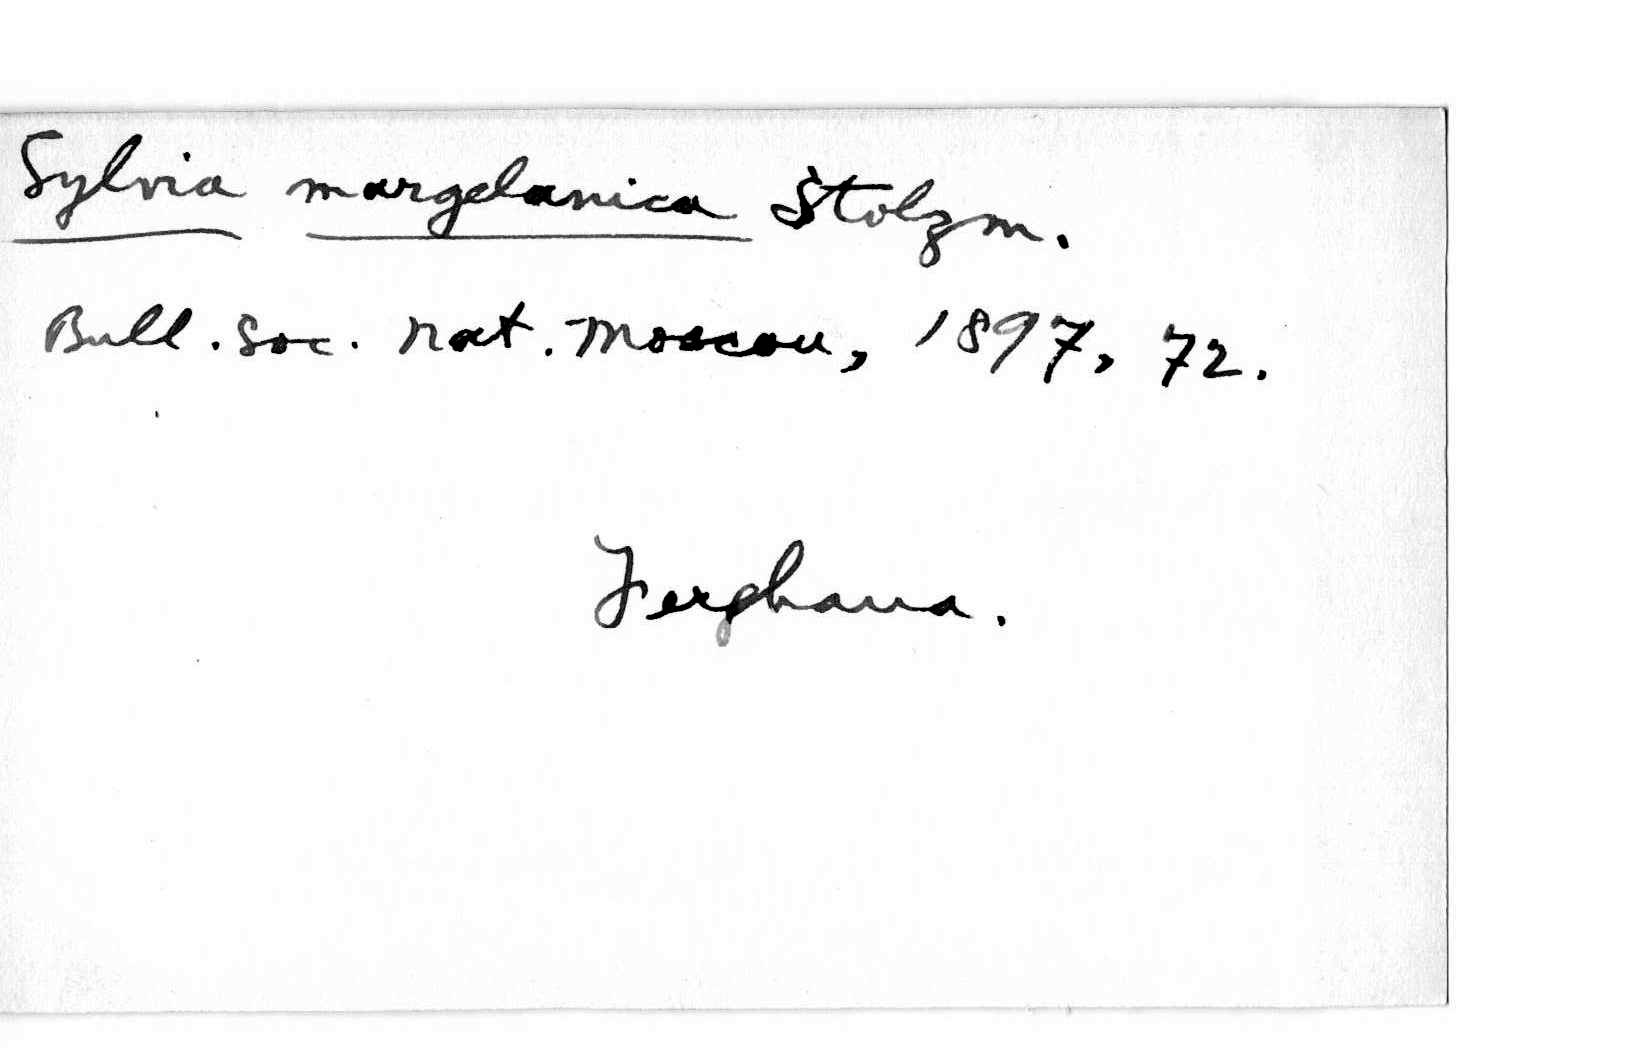 Sylvia margelanica Stolzm.
Bull. Soc. Nat. Moscou, 1897, 72.
Ferghana.